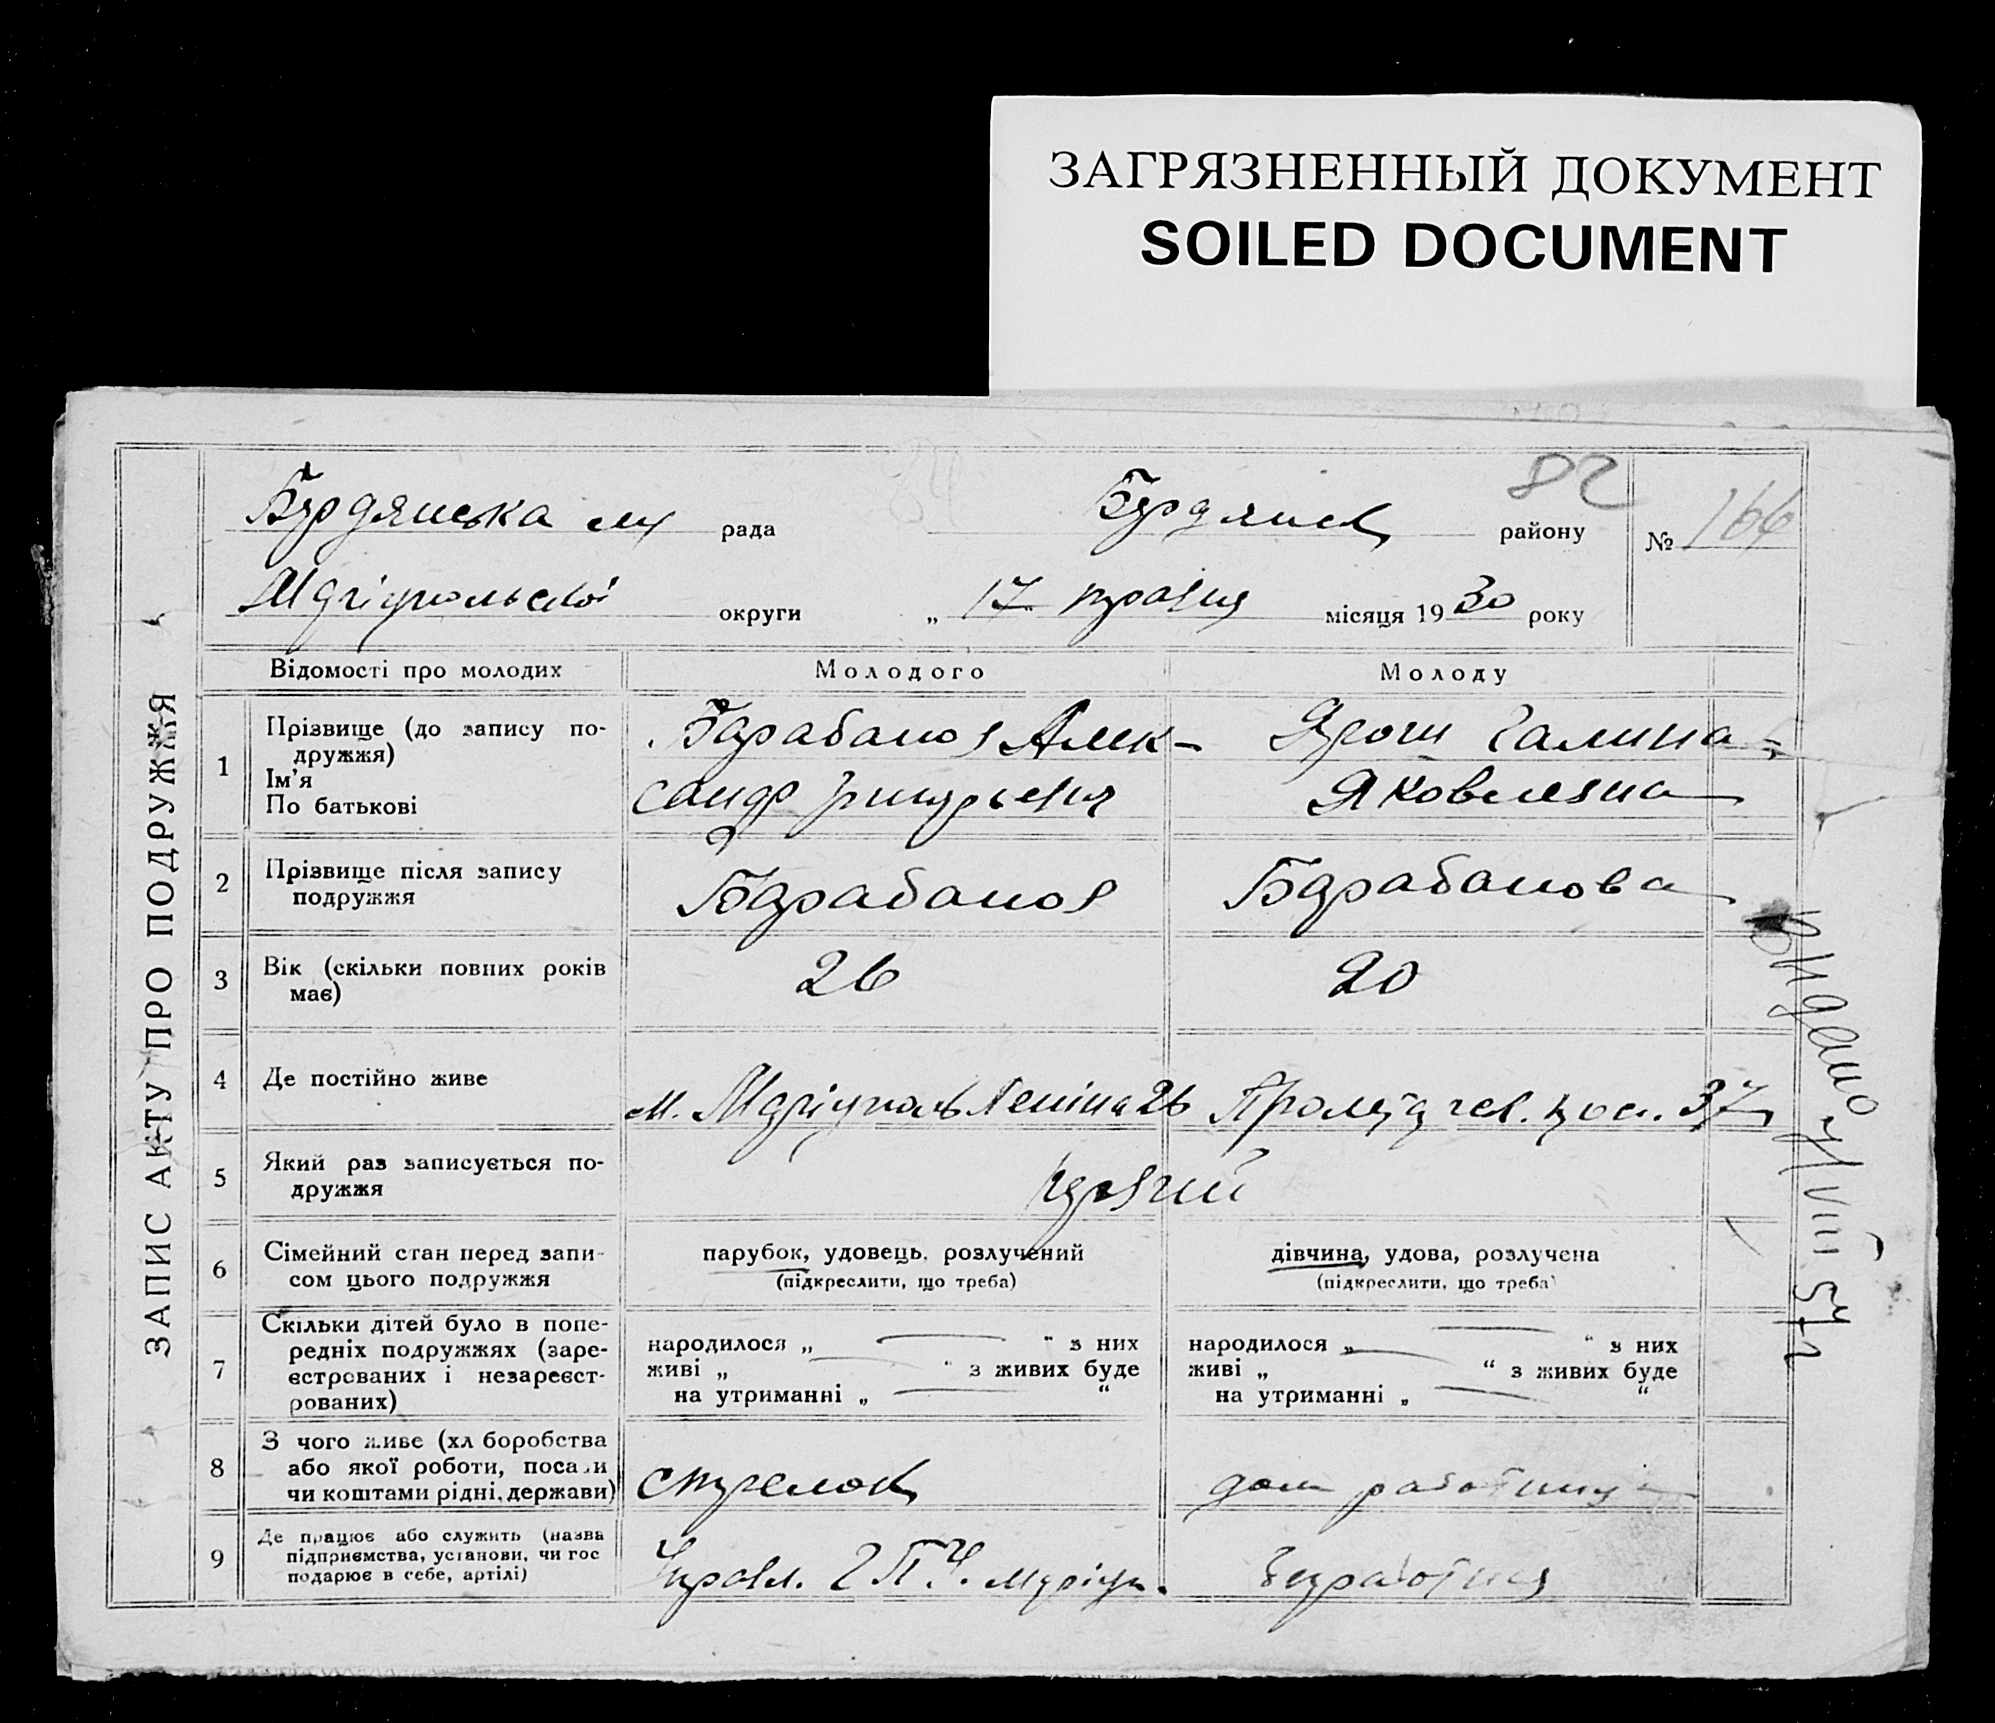 ЗАГРЯЗНЕННЫЙ ДОКУМЕНТ
SOILED DOCUMENT
82
Бердянська рада Бердянськ району № 166
Маріупольської округи „ 17 " травня місяця 1930 року
ЗАПИС АКТУ ПРО ПОДРУЖЖЯ
Відомості про молодих Молодого Молоду
1 Прізвище (до запису по-
дружжя)
Ім'я
По батькові
Барабанов Алек-
сандр
Галина
Яковлевна
2 Прізвище після запису
подружжя
Барабанов Барабанова
3 Вік (скільки повних років
має)
26 20
4 Де постійно живе
м. Маріуполь Леніна 26 37
5 Який раз записується по-
дружжя
первий
6 Сімейний стан перед запи-
сом цього подружжя
парубок, удовець, розлучений
(підкреслити, що треба)
дівчина, удова, розлучена
(підкреслити, що треба)
7 Скільки дітей було в попе-
редніх подружжях (заре-
єстрованих і незареєст-
рованих)
народилося „ — " з них
живі „ — " з живих буде
на утриманні „ — "
народилося „ — " з них
живі „ — " з живих буде
на утриманні „ — "
8 З чого живе (хліборобства
або якої роботи, посади
чи коштами рідні, держави)
стрелок дом работница
9 Де працює або служить (назва
підприємства, установи, чи гос
подарює в себе, артілі)
Управл. Маріуп.
Видано